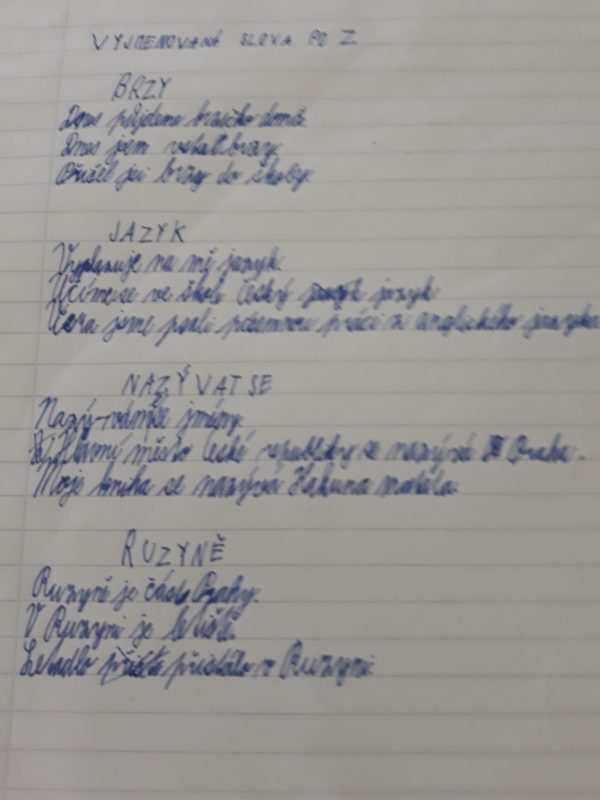 VYJMENOVANÁ SLOVA PO Z
BRZY
Dnes půjdeme brzičko domů.
Dnes jsem vstal brzy.
brzy do školy.
JAZYK
Vyplazuje na mě jazyk.
Učíme se ve škole český jazyk
jsme psali písemnou práci z anglického jazyka
NAZÝVAT SE
jmény.
Hlavní město České republiky se nazývá Praha.
Moje kniha se nazývá Hakuna matata.
RUZYNĚ
Ruzyně je část Prahy.
V Ruzyni je letiště.
Letadlo přistálo v Ruzyni